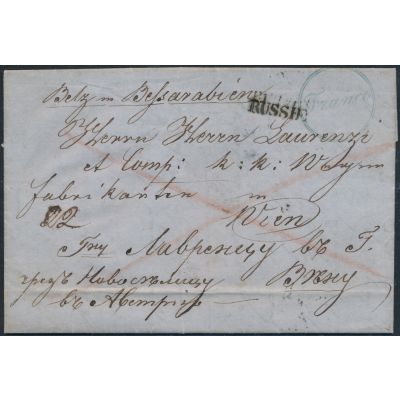 Belz in Bessarabien
RUSSIE
Franco
Herrn Herrn Laurenzi
et Comp: k: k: Wagen
fabrikanten in
22
Wien
Гну Лавренцу въ Г.
чрезъ Новоселицу Вѣну
въ Австріи